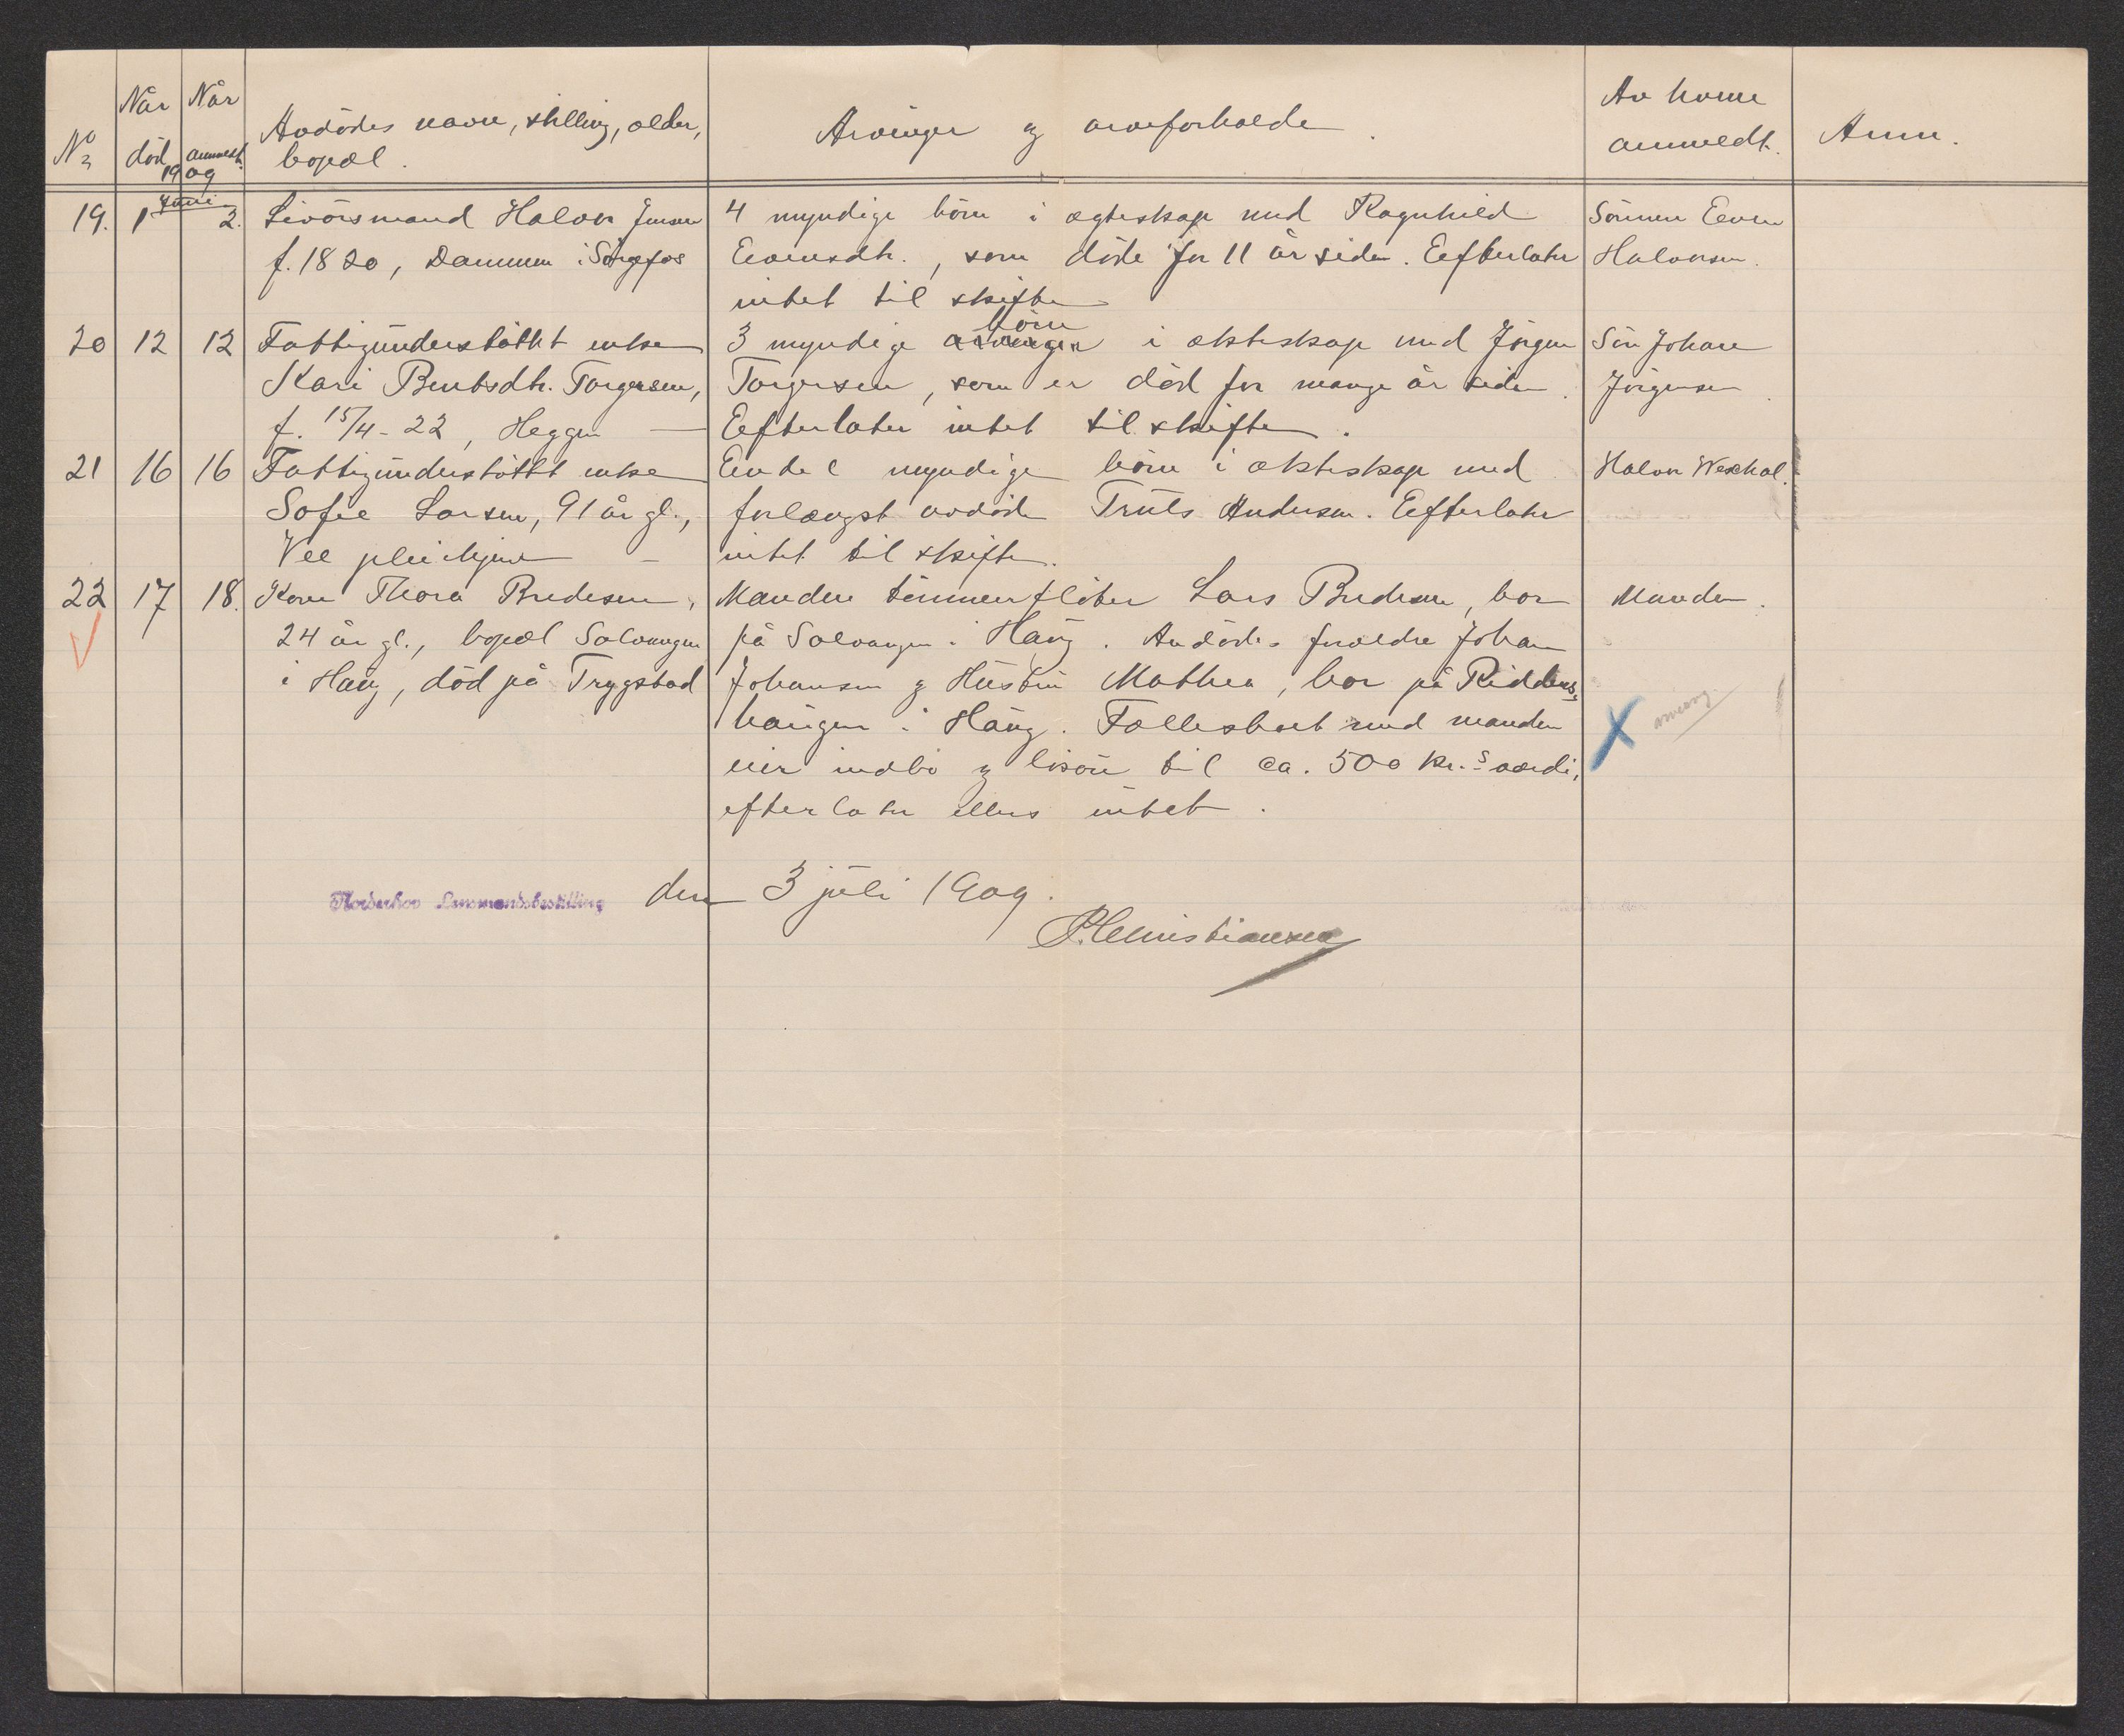 No | Når død | Når anmeldt. | Avdödes navn, stilling, alder, bopæl. | Arvinger og arveforholde. | Av hvem anmeldt. | Anm.
1909
Juni
19. | 1 | 2. | Livörsmand Halvor Jensen | 4 myndige börn i ægteskap med Ragnhild | Sönnen Even
f. 1820, Dammen i Sørgefos | Evensdtr., som döde for 11 år siden. Eefterlater | Halvorsen.
intet til skifte
20 | 12 | 12 | Fattigunderstöttet enke | 3 myndige börn i ekteskap med Jörgen | Sön Johan
Kari Berntsdtr. Torgersen, | Torgersen, som er död for mange år siden. | Jörgensen.
f. 15/4-22, Heggen — | Eefterlater intet til skifte.
21 | 16 | 16 | Fattigunderstöttet enke | Endel myndige börn i ekteskap med | Halvor Wexhal.
Sofie Larsen, 91 år gl., | forlængst avdöde Truls Andersen. Eefterlater
Vee pleiehjem — | intet til skifte.
22 | 17 | 18. | Kone Thora Bredesen, | Manden tömmerflöter Lars Bredesen, bor | Manden.
24 år gl., bopæl Solvangen | på Solvangen i Haug. Avdödes foreldre Johan
i Haug, död på Trygstad | Johansen og Hustru Mathea, bor på Ridders-
haugen i Haug. Fællesboet med manden
eier indbo og lösöre til ca. 500 kr.s værdi,
efterlater ellers intet.
Norderhov Lensmandsbestilling den 3 juli 1909.
P. Christiansen